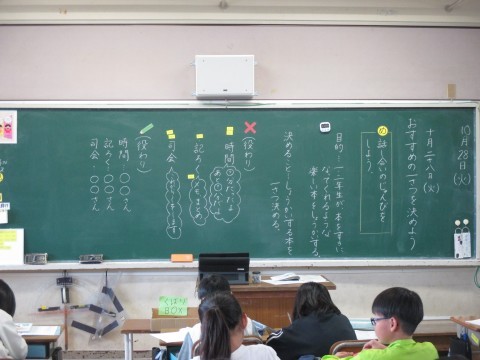 10月28日(火)
十月二十八日(火)
おすすめの一さつを決めよう
め 話し合いのじゅんびを
しよう。
目的…一年生が、本をすきに
なってくれるような
楽しい本をしょうかいする。
決めること…しょうかいする本を
一さつ決める。
(役わり)
時間
記ろく
司会
(役わり)
時間 〇〇さん
記ろく 〇〇さん
司会 〇〇さん
くばり
BOX